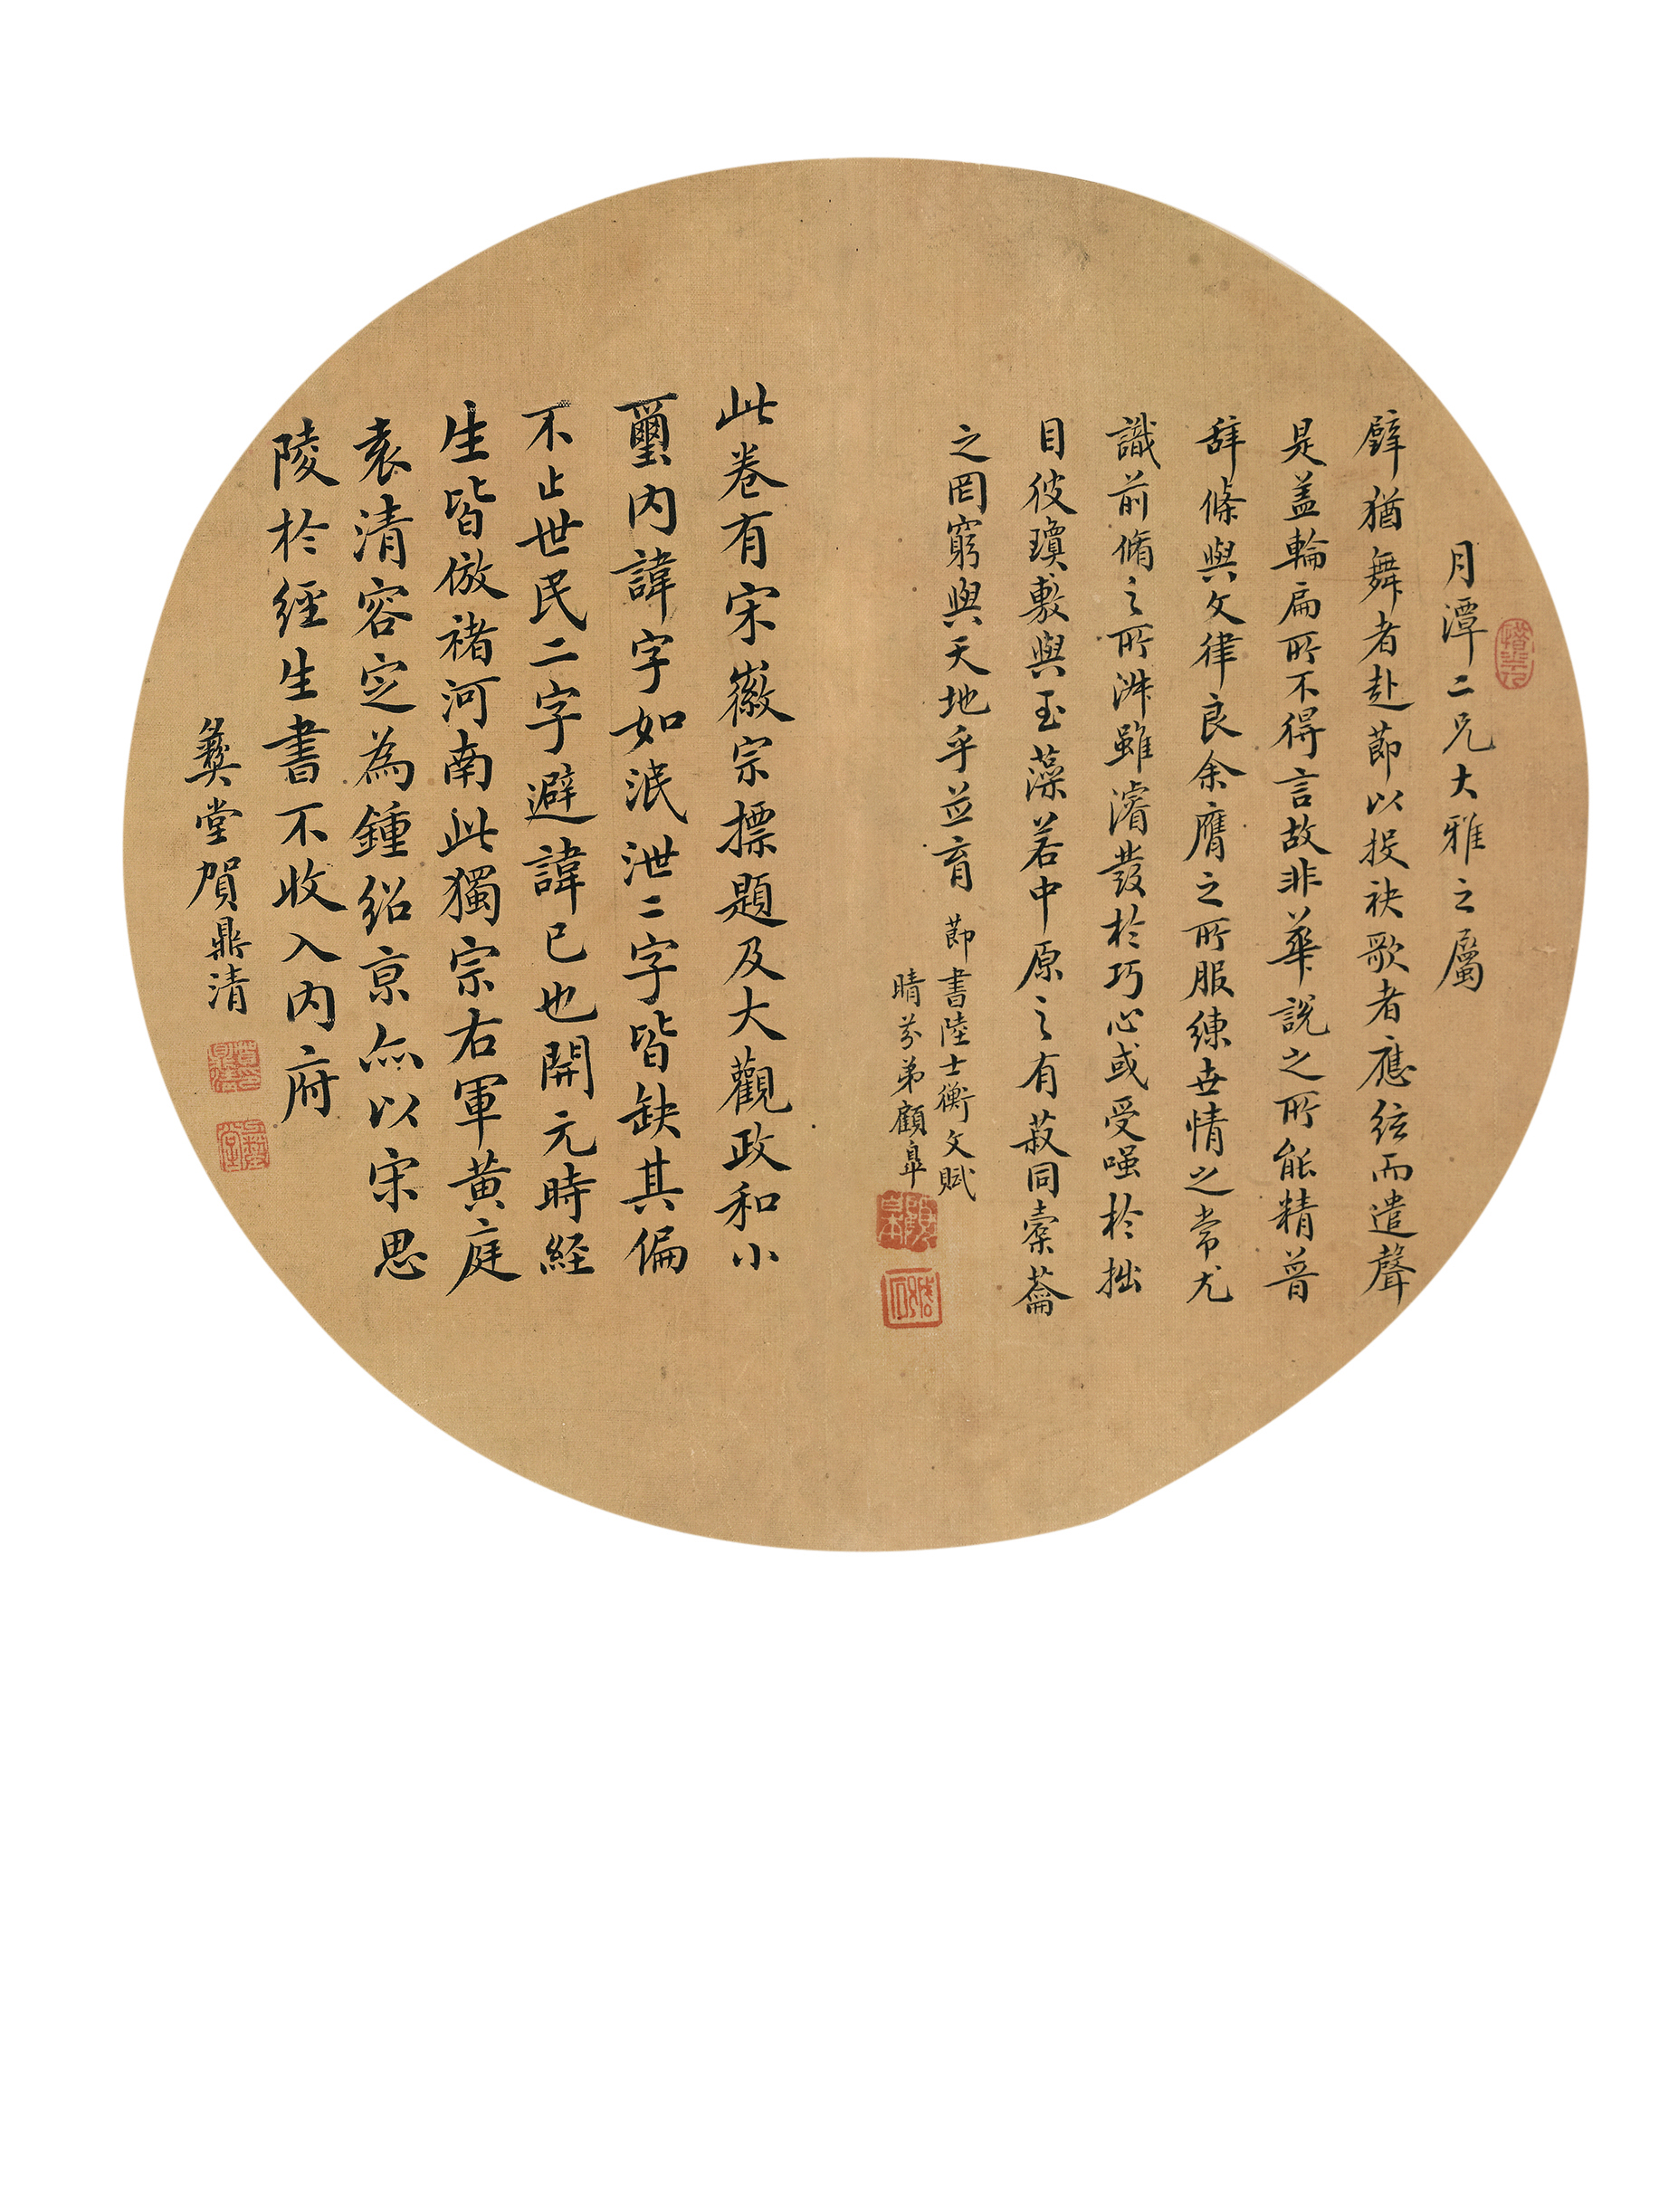 月潭二兄大雅之屬
譬猶舞者赴節以投袂歌者應絃而遣聲
是盖輪扁所不得言故非華說之所能精普
辞條與文律良余膺之所服練世情之常尤
識前脩之所淑雖濬發於巧心或受嗤於拙
目彼瓊敷與玉藻若中原之有菽同橐籥
之罔窮與天地乎並育 節書陸士衡文賦
晴芬弟顧皋
此卷有宋徽宗摽題及大觀政和小
璽内諱字如泯泄二字皆缺其偏
不止世民二字避諱已也開元時経
生皆倣禇河南此獨宗右軍黄庭
袁清容定為鍾紹京亦以宋思
陵於經生書不收入内府
彝堂賀鼎清